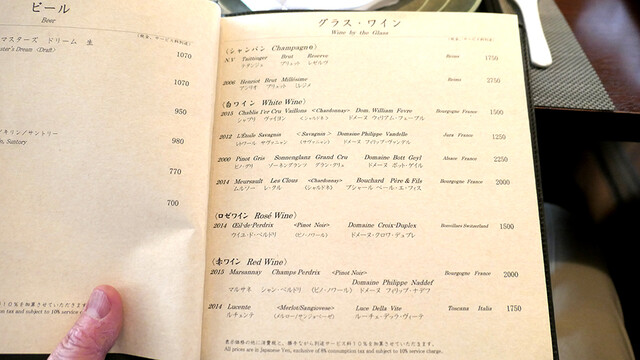 ビール
Beer
マスターズ ドリーム 生
ster's Dream (Draft)
1070
1070
950
キリン/サントリー
n, Suntory
980
770
700
10%を加算させていただきます
on tax and subject to 10% service c
グラス・ワイン
Wine by the Glass
(税抜、サービス料別途)
〈シャンパン Champagne〉
N.V Taittinger Brut Reserve Reims 1750
テタンジェ ブリュット レゼルヴ
2006 Henriot Brut Millésime Reims 2750
アンリオ ブリュット ミレジメ
〈白ワイン White Wine〉
2015 Chablis 1er Cru Vaillons <Chardonnay> Dom. William Fevre Bourgogne France 1500
シャブリ ヴァイヨン 〈シャルドネ〉 ドメーヌ ウィリアム・フェーブル
2012 L'Étoile Savagnin < Savagnin > Domaine Philippe Vandelle Jura France 1250
レトワール サヴァニャン 〈サヴァニャン〉 ドメーヌ フィリップ・ヴァンデル
2000 Pinot Gris Sonnenglanz Grand Cru Domaine Bott Geyl Alsace France 2250
ピノ・グリ ゾーネングランツ グラン・クリュ ドメーヌ ボット・ゲイル
2014 Meursault Les Clous <Chardonnay> Bouchard Père & Fils Bourgogne France 2000
ムルソー レ・クル 〈シャルドネ〉 ブシャール ペール・エ・フィス
〈ロゼワイン Rosé Wine〉
2014 Œil-de-Perdrix <Pinot Noir> Domaine Croix-Duplex Bonvillars Switzerland 1500
ウイエ・ド・ペルドリ 〈ピノ・ノワール〉 ドメーヌ・クロワ・デュプレ
〈赤ワイン Red Wine〉
2015 Marsannay Champs Perdrix <Pinot Noir> Bourgogne France 2000
Domaine Philippe Naddef
マルサネ シャン・ペルドリ 〈ピノ・ノワール〉 ドメーヌ フィリップ・ナデフ
2014 Lucente <Merlot/Sangiovese> Luce Della Vite Toscana Italia 1750
ルチェンテ 〈メルロー/サンジョベーゼ〉 ルーチェ・デッラ・ヴィーテ
表示価格の他に消費税と、勝手ながら別途サービス料10%を加算させていただきます。
All prices are in Japanese Yen, exclusive of 8% consumption tax and subject to 10% service charge.